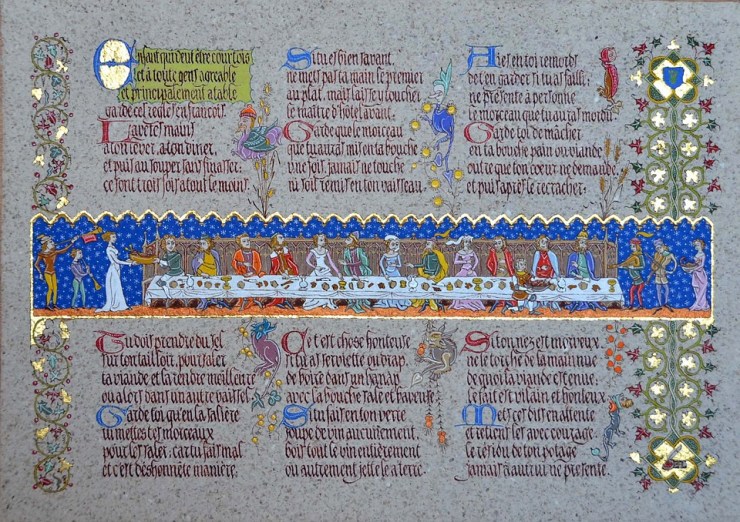 Enfant qui veut être courtois
et à toute gens agréable
et principalement à table
garde ces règles en françois
Lave tes mains
à ton lever, à ton dîner,
et puis au souper sans finasser:
ce sont trois fois à tout le moins.
Si tu es bien savant,
ne mets pas ta main le premier
au plat, mais laisse y toucher
le maître d'hôtel avant.
Garde que le morceau
que tu auras mis en ta bouche
une fois, jamais ne touche
ni soit remis en ton vaisseau.
Aies en toi remords
de t'en garder si tu as failli;
ne présente à personne
le morceau que tu auras mordu
Garde toi de mâcher
en ta bouche pain ou viande
outre que ton coeur ne demande,
et puis après le recracher.
Tu dois prendre du sel
sur ton tailloir, pour saler
ta viande et la rendre meilleure
ou alors dans un autre vaissel
Garde toi qu'en la salière
tu mettes tes morceaux
pour les saler: car tu fais mal
et c'est déshonnête manière.
Ce t'est chose honteuse
si tu as serviette ou drap
de boire dans un hanap
avec la bouche sale et baveuse
Si tu fais en ton verre
soupe de vin aucunement,
bois tout le vin entièrement
ou autrement jette le à terre.
Si ton nez est morveux
ne le torche de la main nue
de quoi la viande est tenue:
le fait est vilain et honteux
Mets ces dits en attente
et retiens les avec courage
le de ton potage
jamais à autrui ne présente.